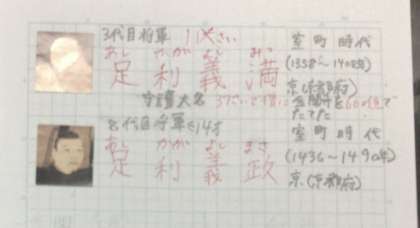 3代目将軍 11さい
あし かが よし みつ
足利義満
守護大名
室町時代
(1358～1408)
京(京都府)
金閣寺を
たてた
8代目将軍 14才
あし かが よし まさ
足利義政
室町時代
(1436～1490)
京(京都府)